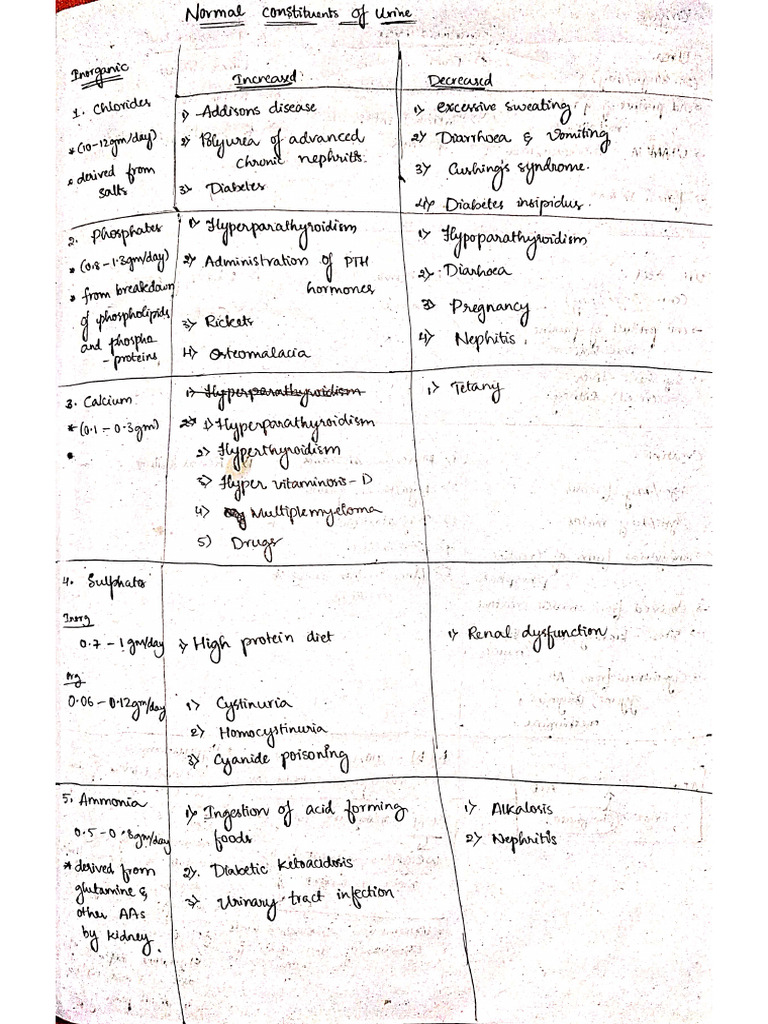 Normal constituents of Urine
Inorganic
Increased
Decreased
1. Chlorides
*(10-12gm/day)
* derived from
salts
1) Addisons disease
2) Polyurea of advanced
chronic nephritis.
3) Diabetes
1) excessive sweating
2) Diarrhoea & Vomiting
3) Cushing's syndrome.
4) Diabetes insipidus.
2. Phosphates
* (0.8-1.3gm/day)
* from breakdown
of phospholipids
and phospha
- proteins
1) Hyperparathyroidism
2) Administration of PTH
hormones
3) Rickets
4) Osteomalacia
1) Hypoparathyroidism
2) Diarhoea
3) Pregnancy
4) Nephitis
3. Calcium
*(0.1-0.3gm)
*
1) Hyperparathyroidism
2) 1) Hyperparathyroidism
2) Hyperthyroidism
3) Hyper vitaminosis-D
4) Multiplemyeloma
5) Drugs
1) Tetany
4. Sulphates
Inorg
0.7-1gm/day
1) High protein diet
1) Renal dysfunction
Org
0.06-0.12gm/day
1) Cystinuria
2) Homocystinuria
3) Cyanide poisoning
5. Ammonia
0.5-0.8gm/day
* derived from
glutamine &
other AAs
by kidney.
1) Ingestion of acid forming
foods
2). Diabetic Ketoacidosis
3) Urinary tract infection
1) Alkalosis
2) Nephritis